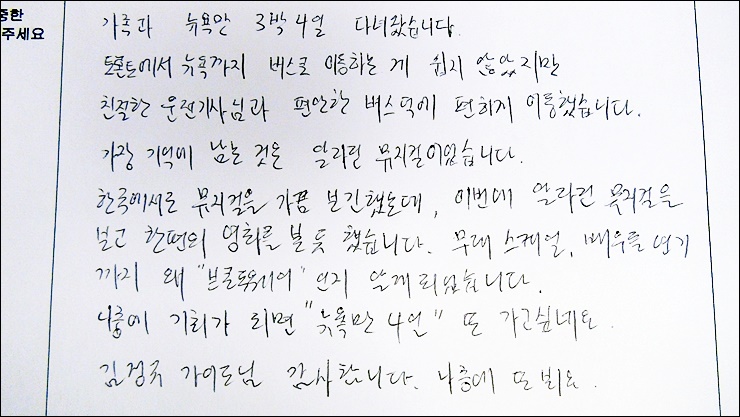 중한
주세요
가족과 뉴욕만 3박 4일 다녀갔습니다.
토론토에서 뉴욕까지 버스로 이동하는 게 쉽지 않았지만
친절한 운전기사님과 편안한 버스덕에 편하게 이동했습니다.
가장 기억에 남는 것은 알라딘 뮤지컬이었습니다.
한국에서도 뮤지컬을 가끔 보긴했는데, 이번에 알라딘 뮤지컬을
보고 한편의 영화를 볼 듯 했습니다. 무대 스케일, 배우들 연기
까지 왜 "브로드웨이" 인지 알게되었습니다.
나중에 기회가 되면 "뉴욕만 4일" 또 가고싶네요.
가이드님 감사합니다. 나중에 또 뵈요.